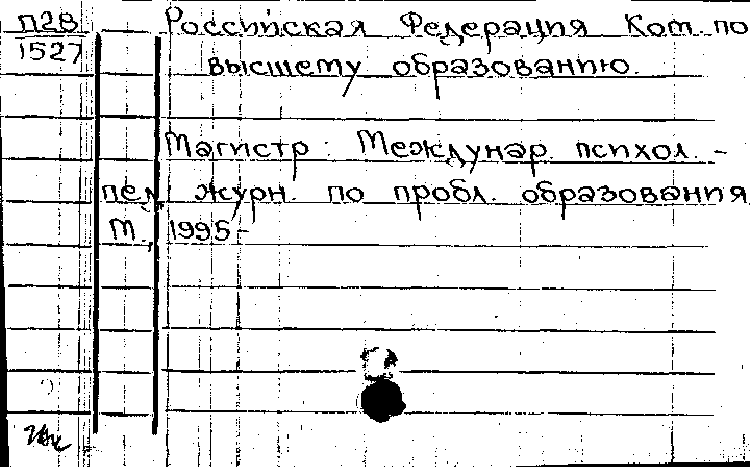 П28 Российская Федерация Ком. по
1527 высшему образованию.
Магистр : Междунар. психол. -
пед. журн. по пробл. образования
М., 1995-